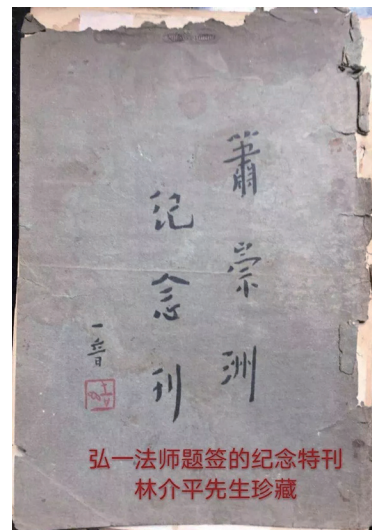 蕭崇洲
紀念刊
一音
弘一法师题签的纪念特刊
林介平先生珍藏